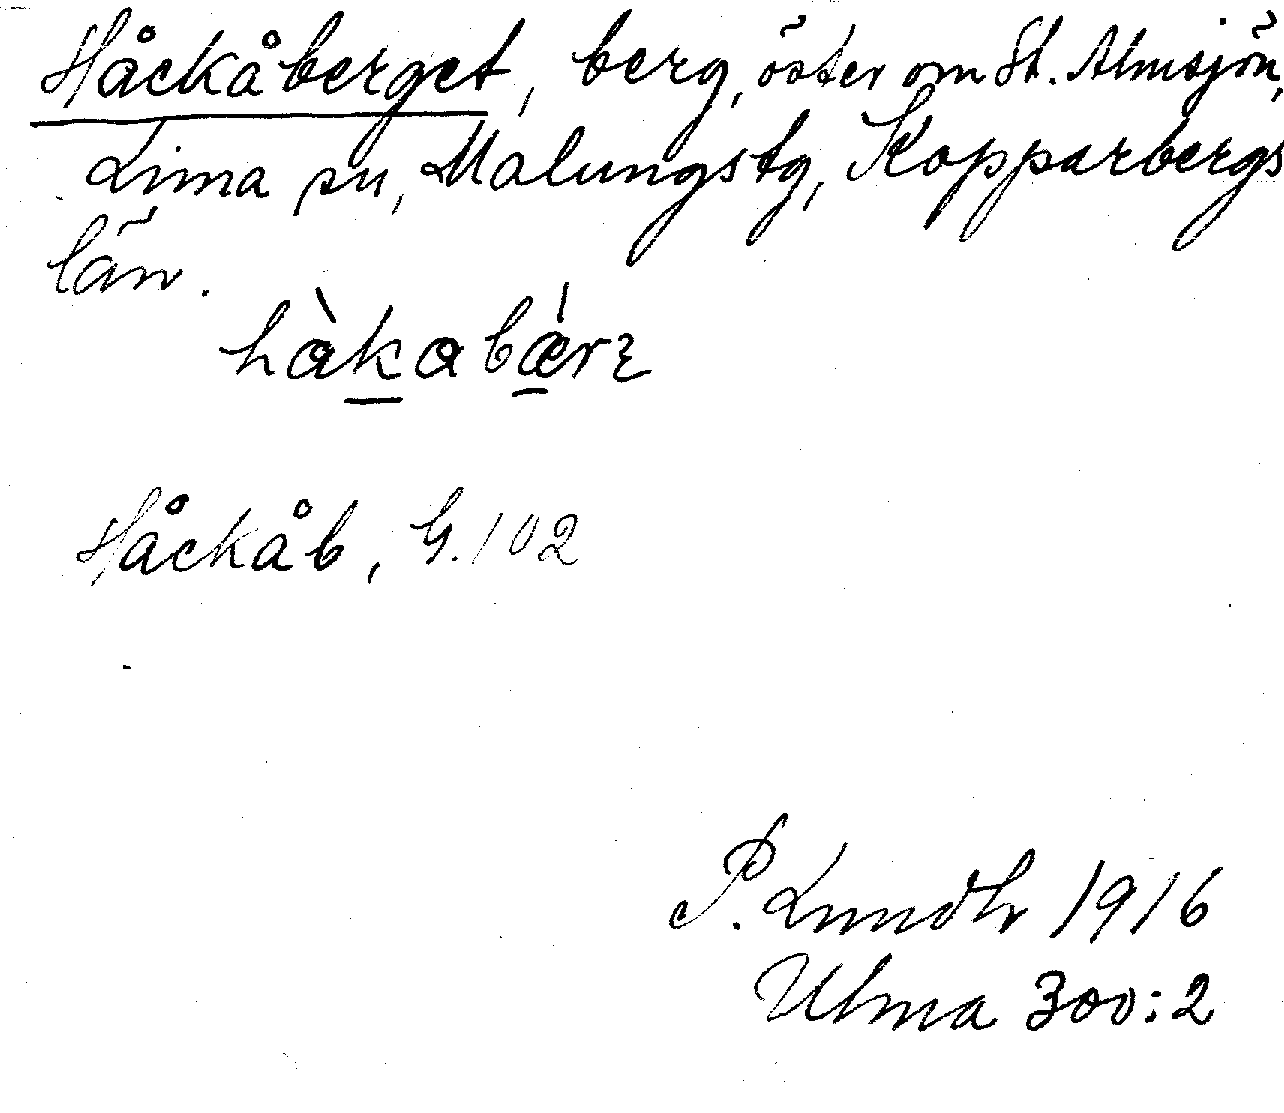 Håckåberget, berg, öster om St. Almsjön,
Lima sn, Malungstg, Kopparbergs
län.
hàkabǽrꝛ
Håckåb, G. 102
P. Lundh 1916
Ulma 300:2